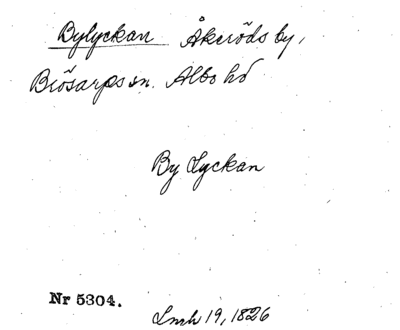 Bylyckan Åkeröds by,
Brösarps sn. Albo hd
By Lyckan
Nr 5304.
Lmh 19, 1826